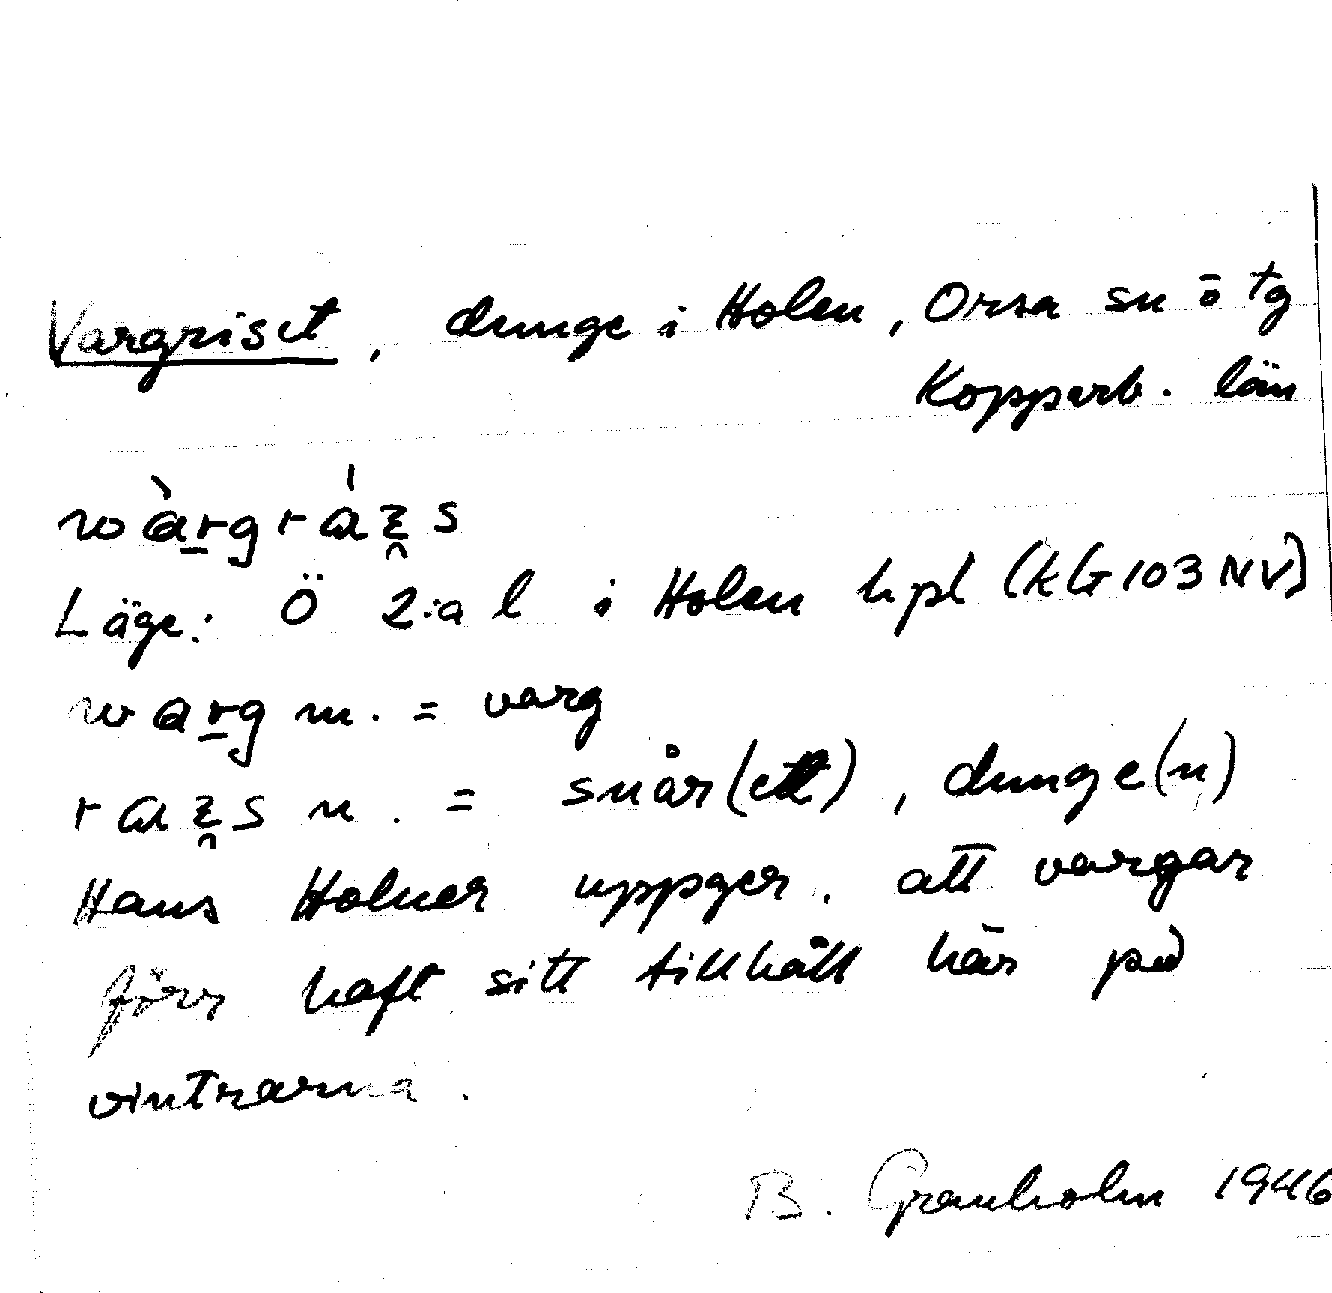 Vargriset, dunge i Holen, Orsa sn ö tg
Kopparb. län
wàrgráɪ̯s
Läge: Ö 2:a l i Holen hpl (kG 103 NV)
warg m. = varg
raɪ̯s n. = snår(ett), dunge(n)
Hans Holner uppger. att vargar
förr haft sitt tillhåll här på
vintrarna.
B. Granholm 1946